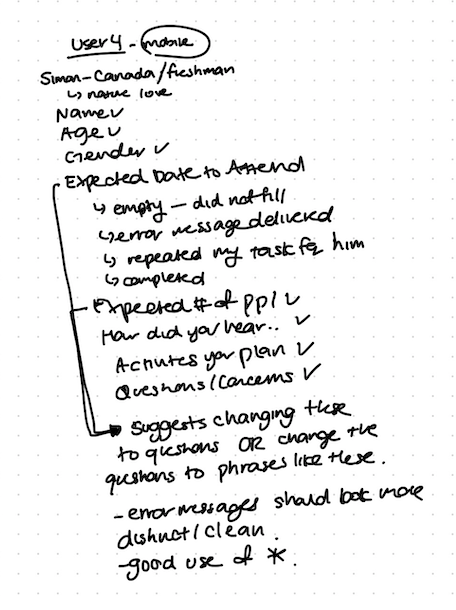 User 4 - mobile
Simon - Canada / freshman
↳ nature love
Name ✓
Age ✓
Gender ✓
Expected Date to Attend
↳ empty — did not fill
↳ error message delivered
↳ repeated my task for him
↳ completed
Expected # of ppl ✓
How did you hear.. ✓
Activites you plan ✓
Questions / Concerns ✓
Suggests changing these
to questions OR change the
questions to phrases like these.
- error messages should look more
distinct / clean.
- good use of *.